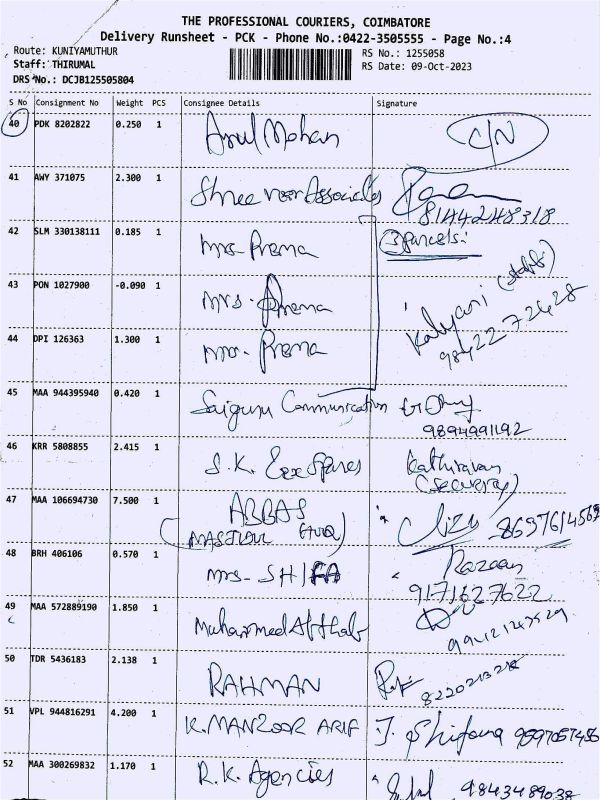 THE PROFESSIONAL COURIERS, COIMBATORE
Delivery Runsheet - PCK - Phone No.:0422-3505555 - Page No.:4
Route: KUNIYAMUTHUR
RS No.: 1255058
Staff: THIRUMAL
RS Date: 09-Oct-2023
DRS No.: DCJB125505804
S No Consignment No Weight PCS Consignee Details Signature
40 PDK 8202822 0.250 1 Arul Mohan C/N
41 AWY 371075 2.300 1 Shree Associates
8144248318
42 SLM 330138111 0.185 1 Mrs. Prema 3 parcels:
43 PON 1027900 -0.090 1 Mrs. Prema Kalyani (staff)
98422 72428
44 DPI 126363 1.300 1 Mrs. Prema
45 MAA 944395940 0.420 1 Saiguru Communication
9894991192
46 KRR 5808855 2.415 1 S.K. Kathiravan
(security)
47 MAA 106694730 7.500 1 ABBAS 8637614569
48 BRH 406106 0.570 1 Mrs. SHIFA Razaan
9171627622
49 MAA 572889190 1.850 1 Muhammed Afthab
50 TDR 5436183 2.138 1 RAHMAN
51 VPL 944816291 4.200 1 K. MANZOOR ARIF J. Shifana
52 MAA 300269832 1.170 1 R.K. Agencies 9843489038